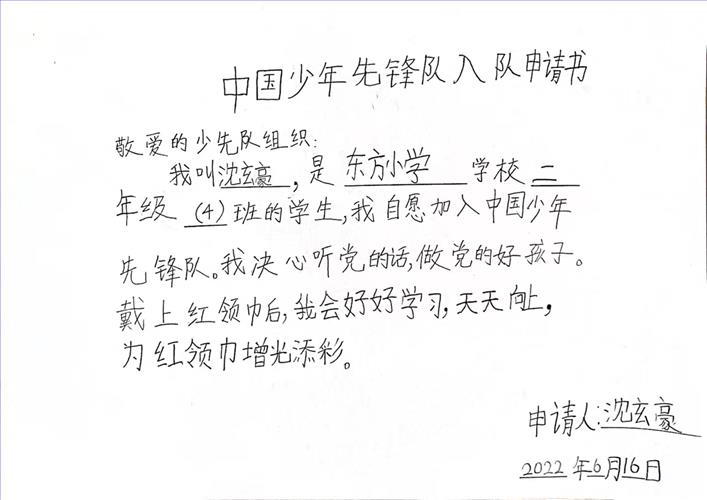 中国少年先锋队入队申请书
敬爱的少先队组织:
我叫沈玄豪,是 东方小学 学校 二
年级 (4) 班的学生,我自愿加入中国少年
先锋队。我决心听党的话,做党的好孩子。
戴上红领巾后,我会好好学习,天天向上,
为红领巾增光添彩。
申请人:沈玄豪
2022年6月16日